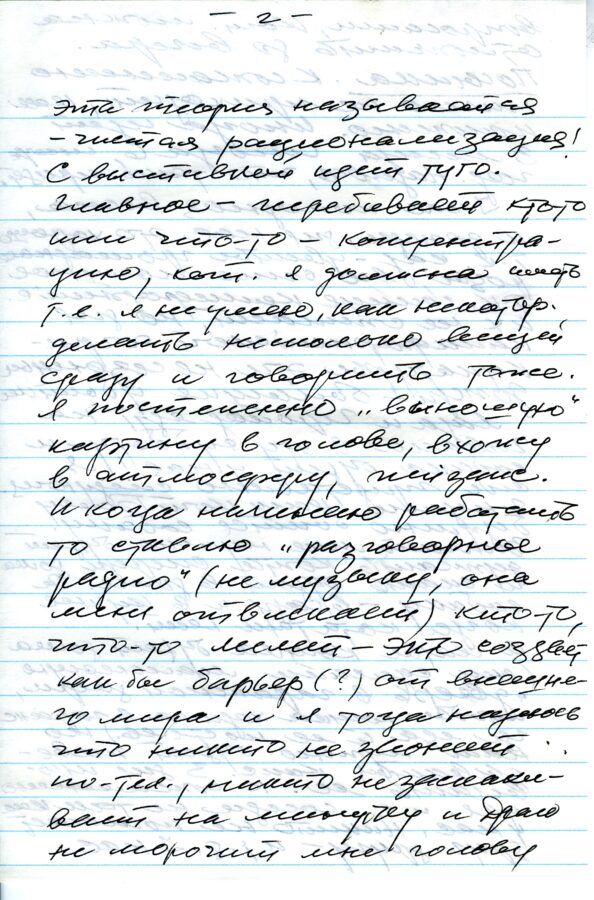 - 2 -
эта теория называется
- чистая рационализация!
С выставкой идет туго.
Главное - перебивает кто-то
или что-то - концентра-
цию, кот. я должна иметь
т.е. я не умею, как некотор.
делать несколько вещей
сразу и говорить тоже.
Я постепенно „вынашиваю"
картину в голове, вхожу
в атмосферу, пейзаж.
И когда начинаю работать
то ставлю „разговорное
радио" (не музыку, она
меня отвлекает) кто-то,
что-то мелет - это создает
как бы барьер (?) от внешне-
го мира и я тогда надеюсь
что никто не звонит
по-тел., никто не заскаки-
вает на минутку и
не морочит мне голову